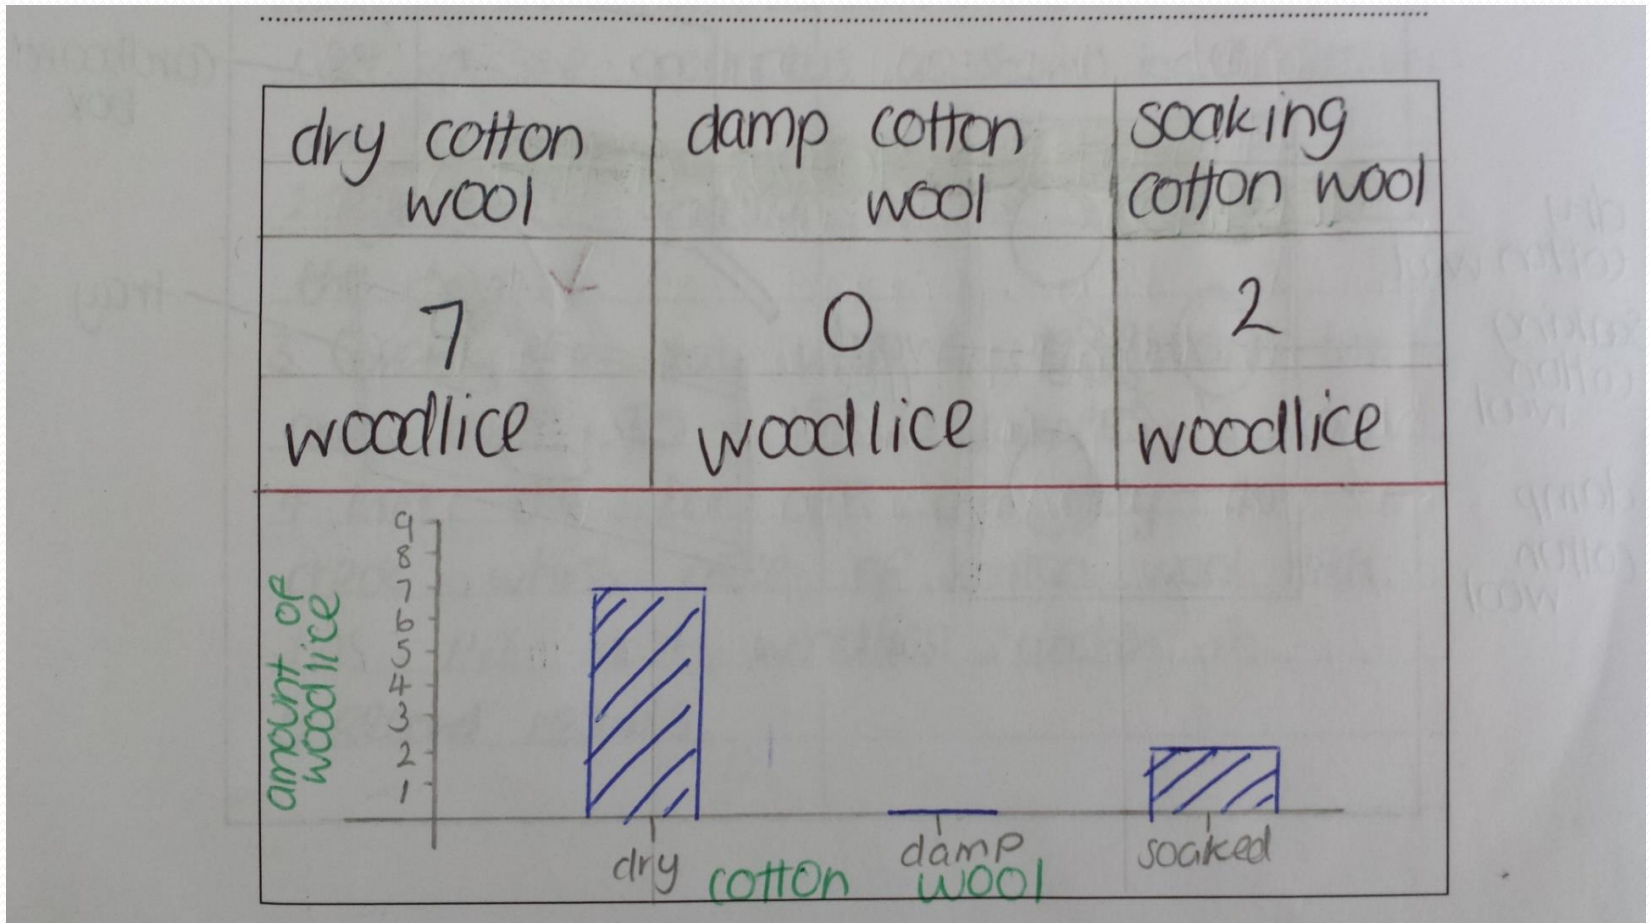 dry cotton
wool
damp cotton
wool
soaking
cotton wool
7
0
2
woodlice
woodlice
woodlice
amount of
woodlice
9
8
7
6
5
4
3
2
1
dry
damp
soaked
cotton wool